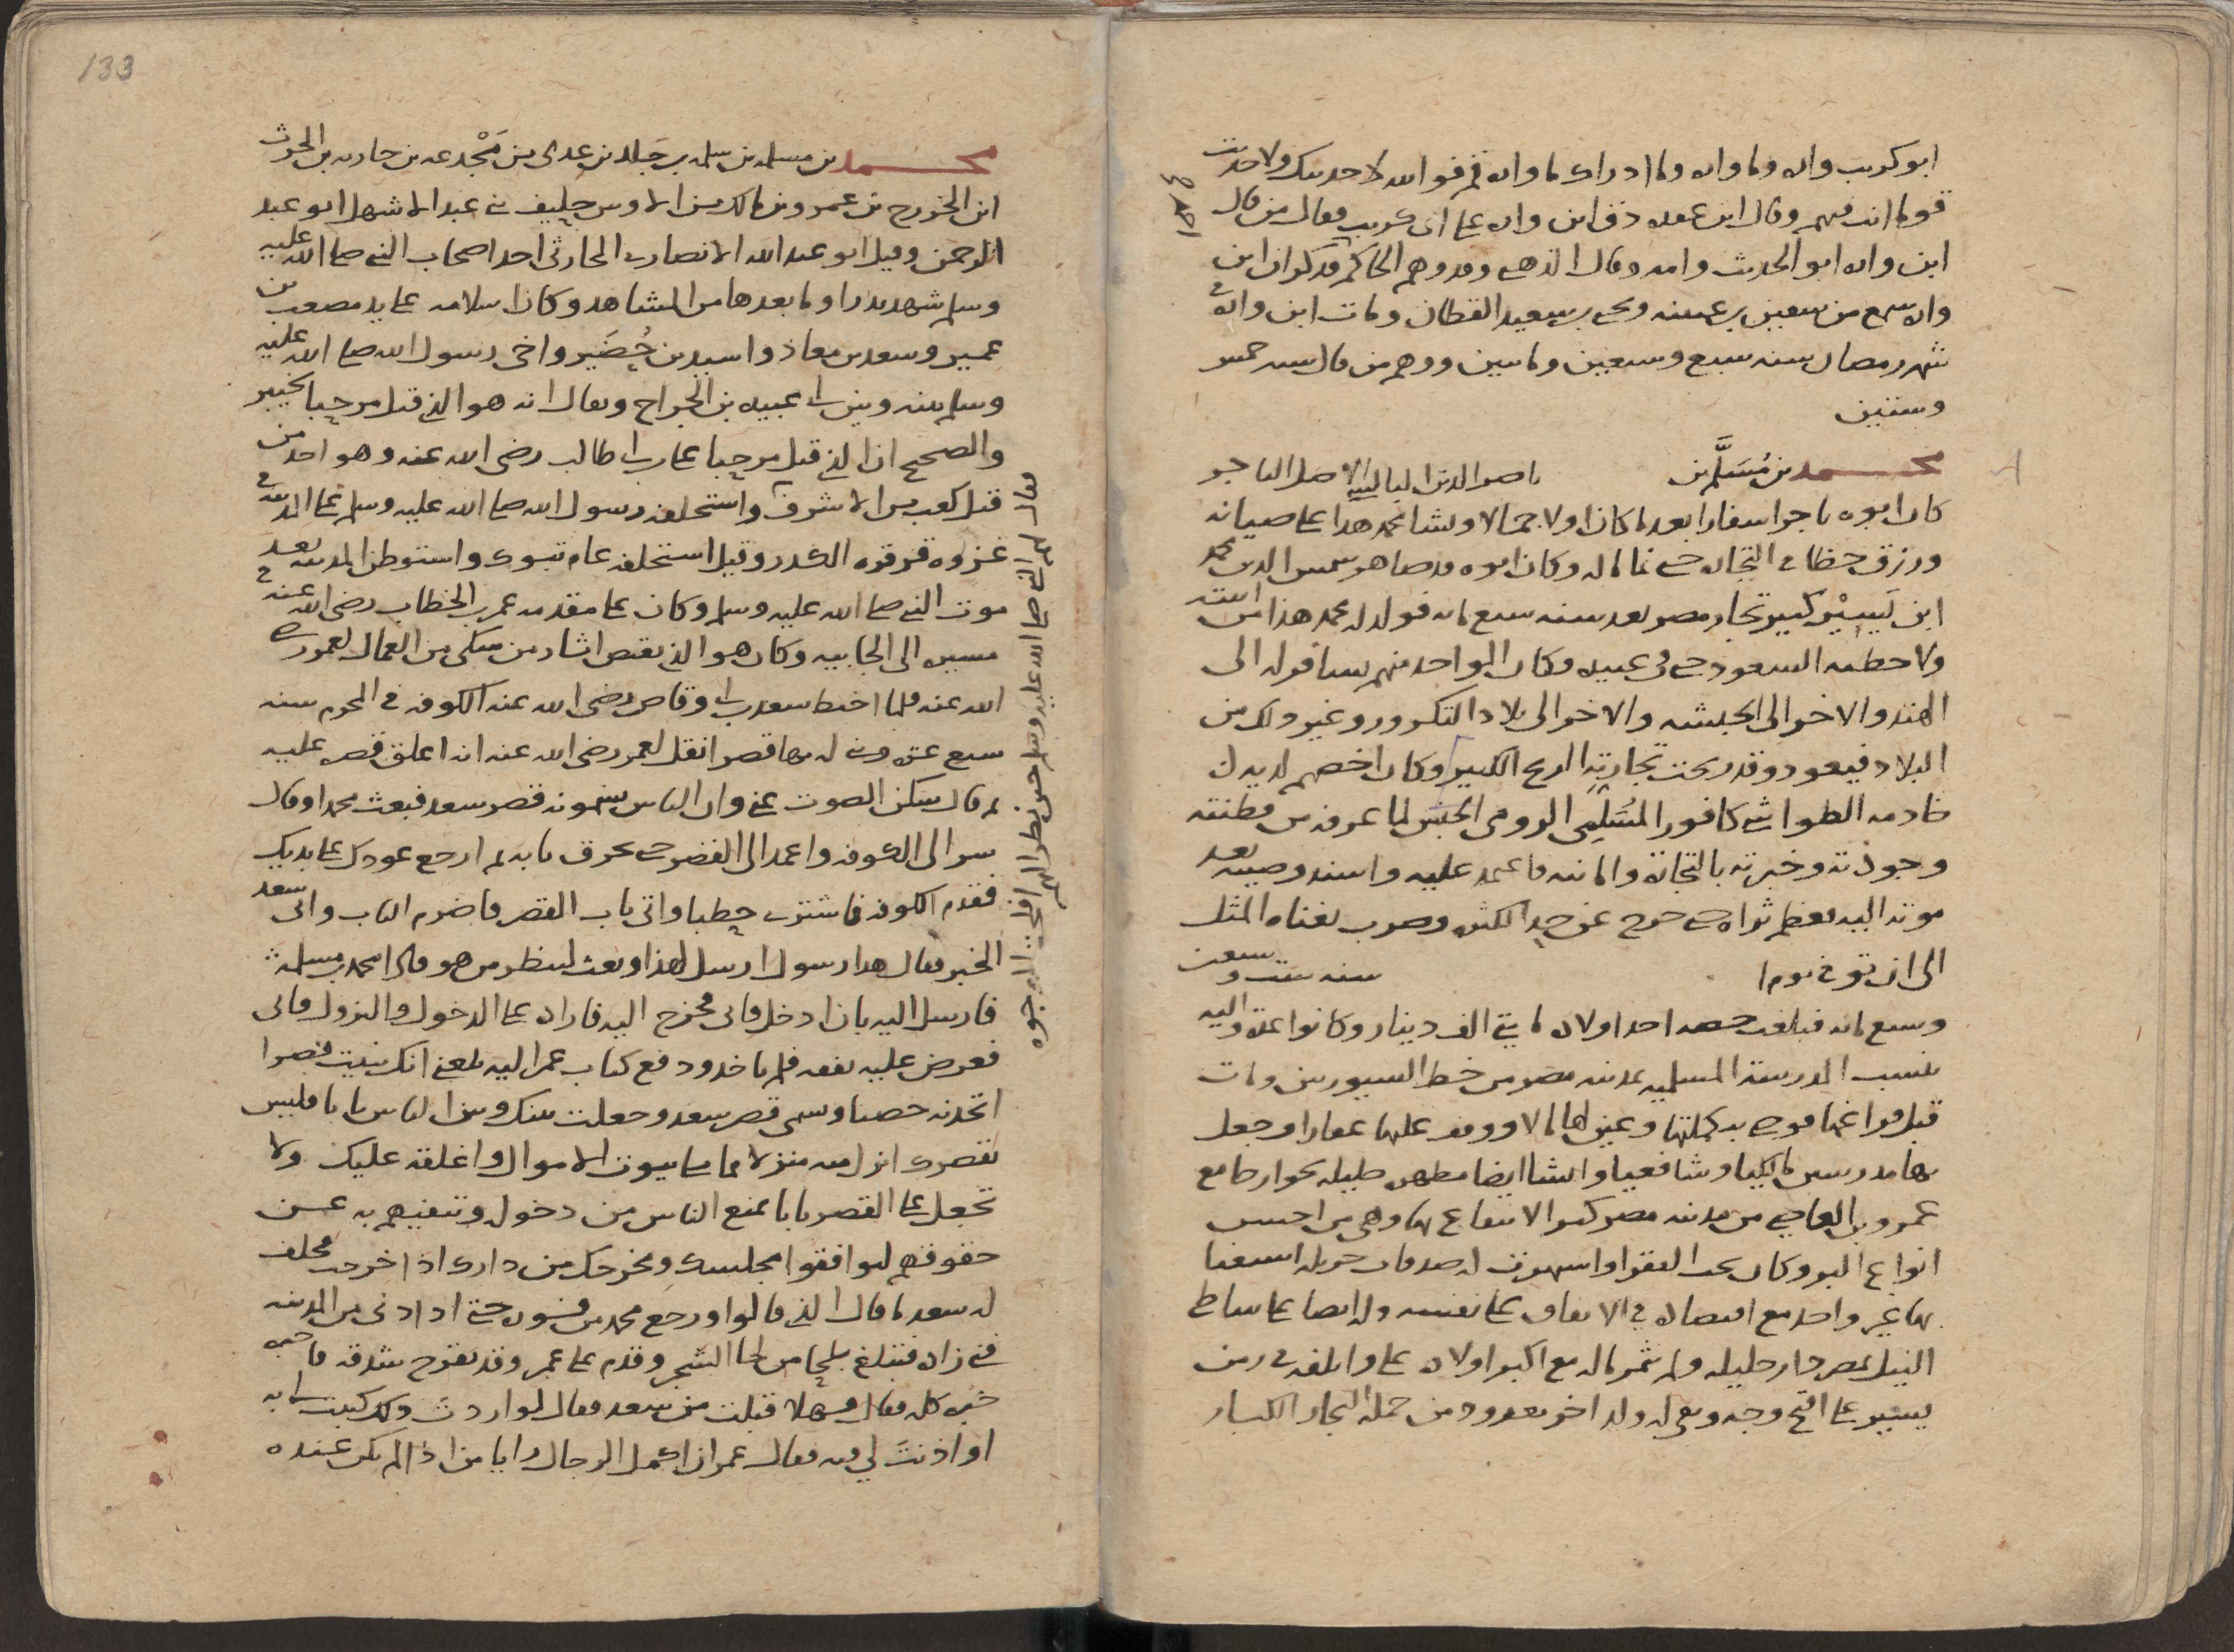 ابو كريب واره وما واره وما ادراك ما واره قم فوالله لا حدثتك ولا حدثت
قوما انت فيهم وقال ابن عقده دق ابن واره على ابى كريب فقال من قال
ابن واره ابو الحديث وامه وقال الذهبى وقد وهم الحاكم فذكر ان ابن
واره سمع من سفيان بن عيينه ويحيى بن سعيد القطان ومات ابن واره فى
شهر رمضان سنه سبع وسبعين ومايتين ووهم من قال سنه خمس
وستين
محمد بن مُسَلَّم بن ناصر الدين البالسى الاصل التاجر
كان ابوه تاجرا سفارا بعد ما كان اولا حمالا ونشا محمد هذا على صيانه
ورزق حظا فى التجاره حتى نما ماله وكان ابوه قد صاهر شمس الدين محمد
ابن يَسِيْر كبير تجار مصر بعد سنه سبع مايه فولد له محمد هذا من ابنته
ولاحظته السعود حتى فى عبيده فكان الواحد منهم يسافر له الى
الهند والاخر الى الحبشه والاخر الى بلاد التكرور وغير ذلك من
البلاد فيعود وقد ربحت تجارته الربح الكبير وكان اخصهم لديه
خادمه الطواشى كافور المُسَلَّمى الرومى الحبش لما عرفه من فطنته
وجودته وخبرته بالتجارة والامانه فاعتمد عليه واسند وصيته بعد
موته اليه فعظم ثراه حتى خرج عن حد الكثره وضرب بغناه المثل
الى ان توفى يوم سنه ست وسبعين
وسبع مايه فبلغت حصه احد اولاده مايتى الف دينار وكانوا عدة واليه
تنسب المدرسة المسلميه بمدينه مصر من خط السيوريين ومات
قبل فراغها فوصى بتكملتها وعين لها مالا ووقف عليها عقارا وجعل
بها مدرسين مالكيا وشافعيا وانشا ايضا مطهره جليله بجوار جامع
عمرو بن العاصى من مدينه مصر كبر الانتفاع بها وهى من احسن
انواع البر وكان يحب الفقرا واشتهرت له صدقات جزيله استغنا
بها غير واحد مع اقتصاده فى الانفاق على نفسه وله ايضا على شاطى
النيل بمصر دار جليله ولم يثمر ماله مع اكبر اولاده على واتلفه فى زمن
يسير على اقبح وجه وبقى له ولد اخر معدود من جمله التجار الكبار
133
محمد بن مسلمه بن سلمه بن خالد بن عدى بن مَجْدعه بن حارثه بن الحرث
ابن الخزرج بن عمرو بن مالك بن الاوس حليف بنى عبد الاشهل ابو عبد
الرحمن وقيل ابو عبد الله الانصارى الحارثى احد اصحاب النبى صلى الله عليه
وسلم شهد بدرا وما بعدها من المشاهد وكان اسلامه على يد مصعب بن
عمير وسعد بن معاذ واسيد بن حُضَير واخى رسول الله صلى الله عليه
وسلم بينه وبين ابى عبيده بن الجراح ويقال انه هو الذى قتل مرحبا بخيبر
والصحيح ان الذى قتل مرحبا على بن ابى طالب رضى الله عنه وهو احد من
قتل كعب بن الاشرف واستخلفه رسول الله صلى الله عليه وسلم على المدينه فى
غزوه قرقره الكدر وقيل استخلفه عام تبوك واستوطن المدينه بعد
موت النبى صلى الله عليه وسلم وكان على مقدمه عمر بن الخطاب رضى الله عنه فى
مسيره الى الجابيه وكان هو الذى يقتص اثار من شكى من العمال لعمر رضى
الله عنه فلما اختط سعد بن ابى وقاص رضى الله عنه الكوفه فى المحرم سنه
سبع عشره وبنى له بها قصرا نقل لعمر رضى الله عنه انه اغلق قصره عليه
ثم قال سكن الصوت عنى وان الناس يسمونه قصر سعد فبعث محمدا وقال
سر الى الكوفه واعمد الى القصر حتى تحرق بابه ثم ارجع عودك على بديك
فقدم الكوفه فاشترى حطبا واتى باب القصر فاضرم الباب واتى سعد
الخبر فقال هذا رسول ارسل لهذا وبعث لينظر من هو فاذا محمد بن مسلمه
فارسل اليه بان ادخل فابى فخرج اليه فاراده على الدخول والنزول فابى
فعرض عليه نفقه فلم ياخذ ودفع كتاب عمر اليه بلغنى انك بنيت قصرا
اتخذته حصنا وسمى قصر سعد وجعلت بينك وبين الناس بابا فليس
بقصرك انزل منه منزلا مما يلى بيوت الاموال واغلقه عليك ولا
تجعل على القصر بابا يمنع الناس من دخوله وتنفيهم به عن
حقوقهم ليوافقوا مجلسك ومخرجك من دارك اذا خرجت فحلف
له سعد ما قال الذى قالوا ورجع محمد من فوره حتى اذا دنى من المدينه
فنى زاده فتبلغ بلحا من لحا الشجر وقدم على عمر وقد تقرح شدقه فاخبره
خبره كله فقال فهلا قبلت من سعد فقال لو اردت ذلك كتبت لى به
او اذنت لى فيه فقال عمر ان اكمل الرجال رايا من اذا لم يكن عنده